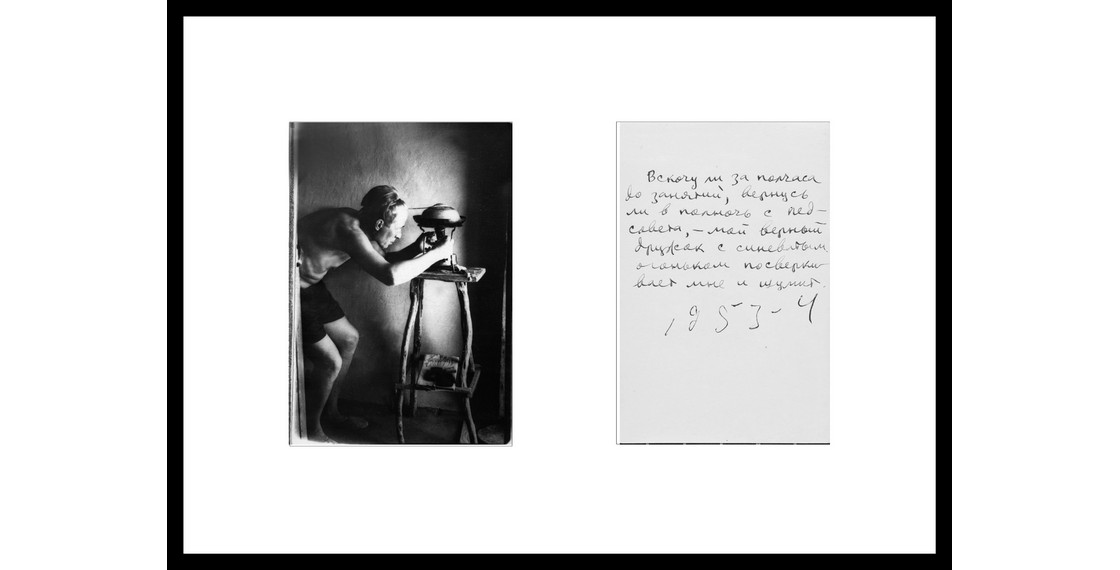 Вскочу ли за полчаса
до занятий, вернусь
ли в полночь с пед-
совета, – мой верный
дружок с синеватым
огоньком посверки-
вает мне и шумит.
1953-4